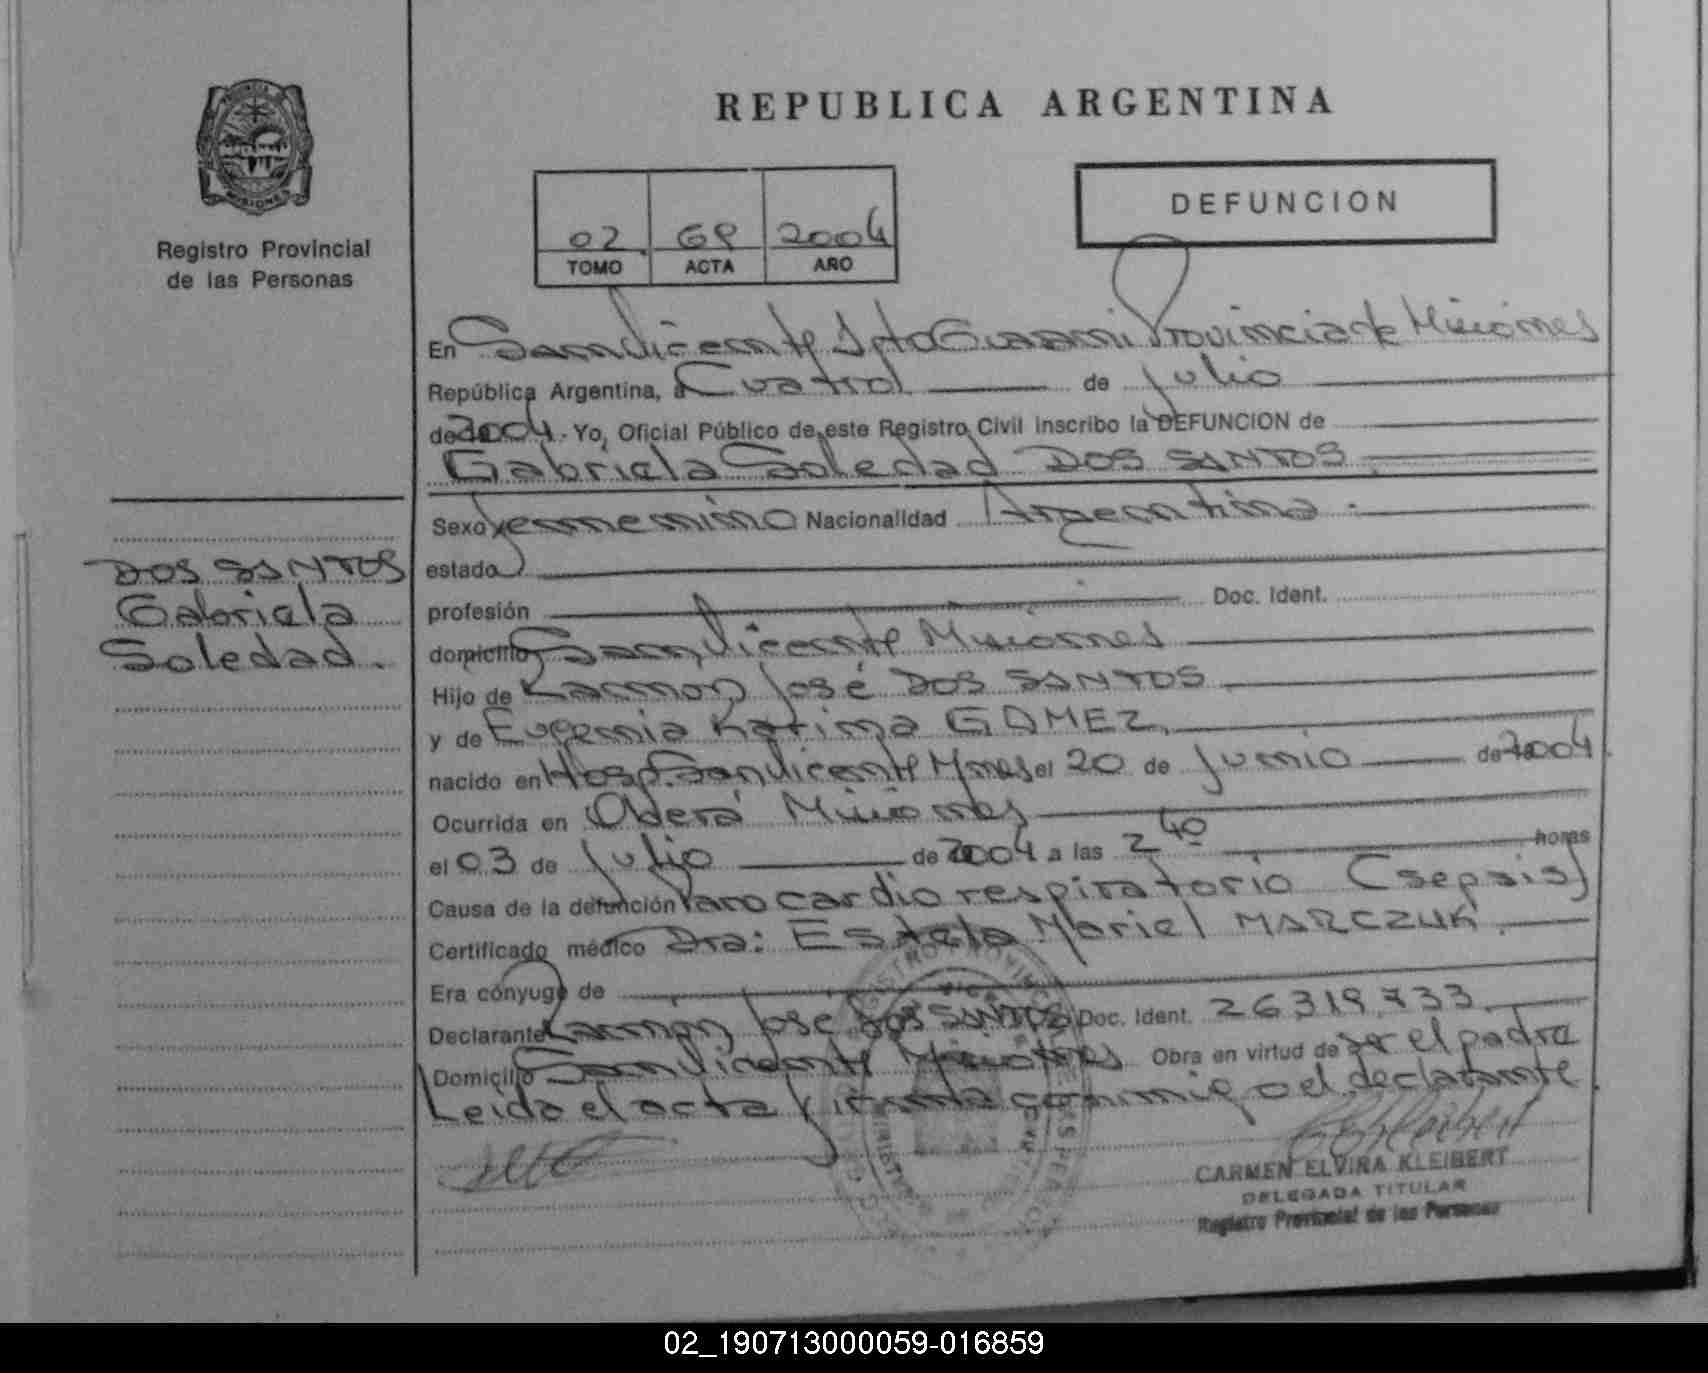 REPUBLICA ARGENTINA
DEFUNCION
02 2004
TOMO ACTA AÑO
Registro Provincial
de las Personas
En San Vicente Dpto Guaraní Provincia de Misiones
República Argentina, a Cuatro de Julio
de 2004. Yo, Oficial Público de este Registro Civil inscribo la DEFUNCION de
Gabriela Soledad DOS SANTOS
Sexo femenino Nacionalidad Argentina.
estado
profesión Doc. Ident.
domicilio San Vicente Misiones
Hijo de Ramon José DOS SANTOS
y de Eugenia GAMEZ.
nacido en Hosp. San Vicente Mnes el 20 de Junio de 2004
Ocurrida en Oberá Misiones
el 03 de Julio de 2004 a las 2 40 horas
Causa de la defunción Paro cardio respiratorio (sepsis)
Certificado médico Dra: Estela Mariel MARCZUK.
Era cónyuge de
Declarante Ramon José DOS SANTOS Doc. Ident.
Domicilio San Vicente Misiones Obra en virtud de ser el padre
Leida el acta firma conmigo el declarante.
CARMEN ELVIRA KLEIBERT
DELEGADA TITULAR
Registro Provincial de las Personas
DOS SANTOS
Gabriela
Soledad.
02_190713000059-016859